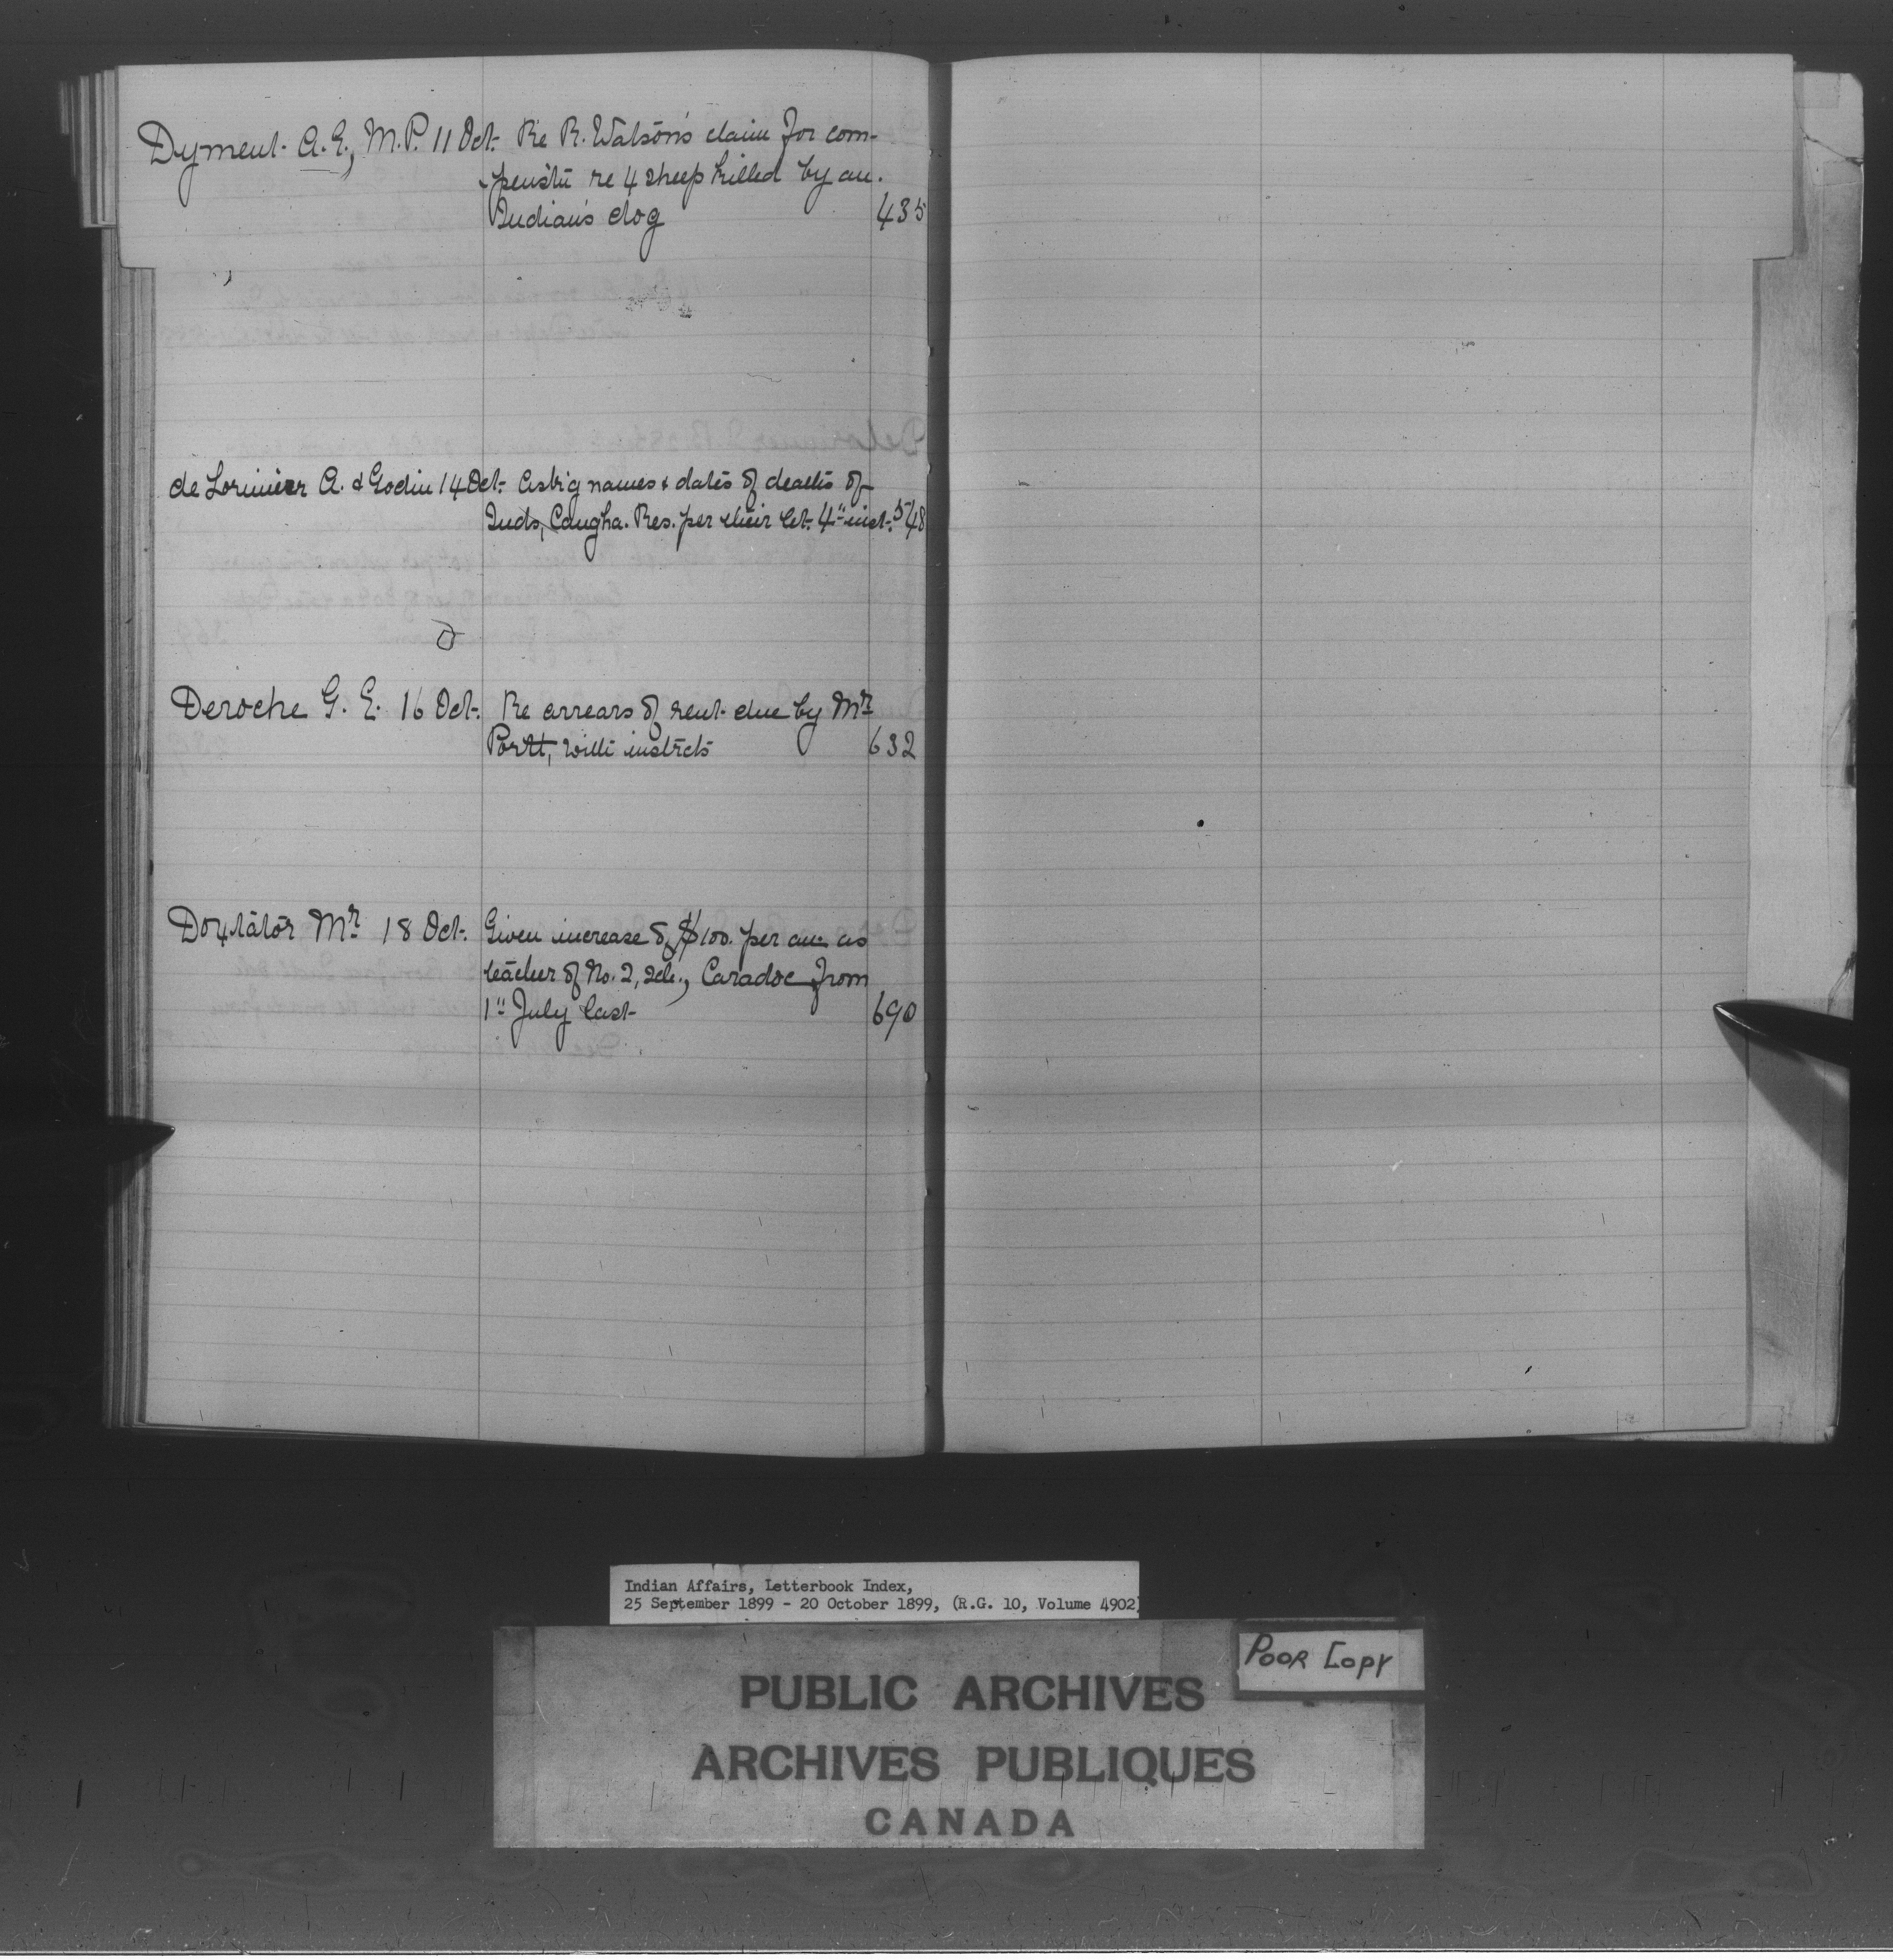 Dyment A.E., M.P. 11 Oct. Re R. Watson's claim for com-
pensatn re 4 sheep killed by an
Indian's dog 435
de Lorimier A. & Godin 14 Oct. Askig names & dates of deaths of
Inds, Caugha. Res. per their let. 4" inst. 548
D
Deroche G. E. 16 Oct. Re arrears of rent due by Mr
Portt, with instrcts 632
Doxtator Mr 18 Oct. Given increase of $100. per an. as
teacher of No. 2, sch., Caradoc from
1" July last 690
Indian Affairs, Letterbook Index,
25 September 1899 - 20 October 1899, (R.G. 10, Volume 4902)
POOR COPY
PUBLIC ARCHIVES
ARCHIVES PUBLIQUES
CANADA